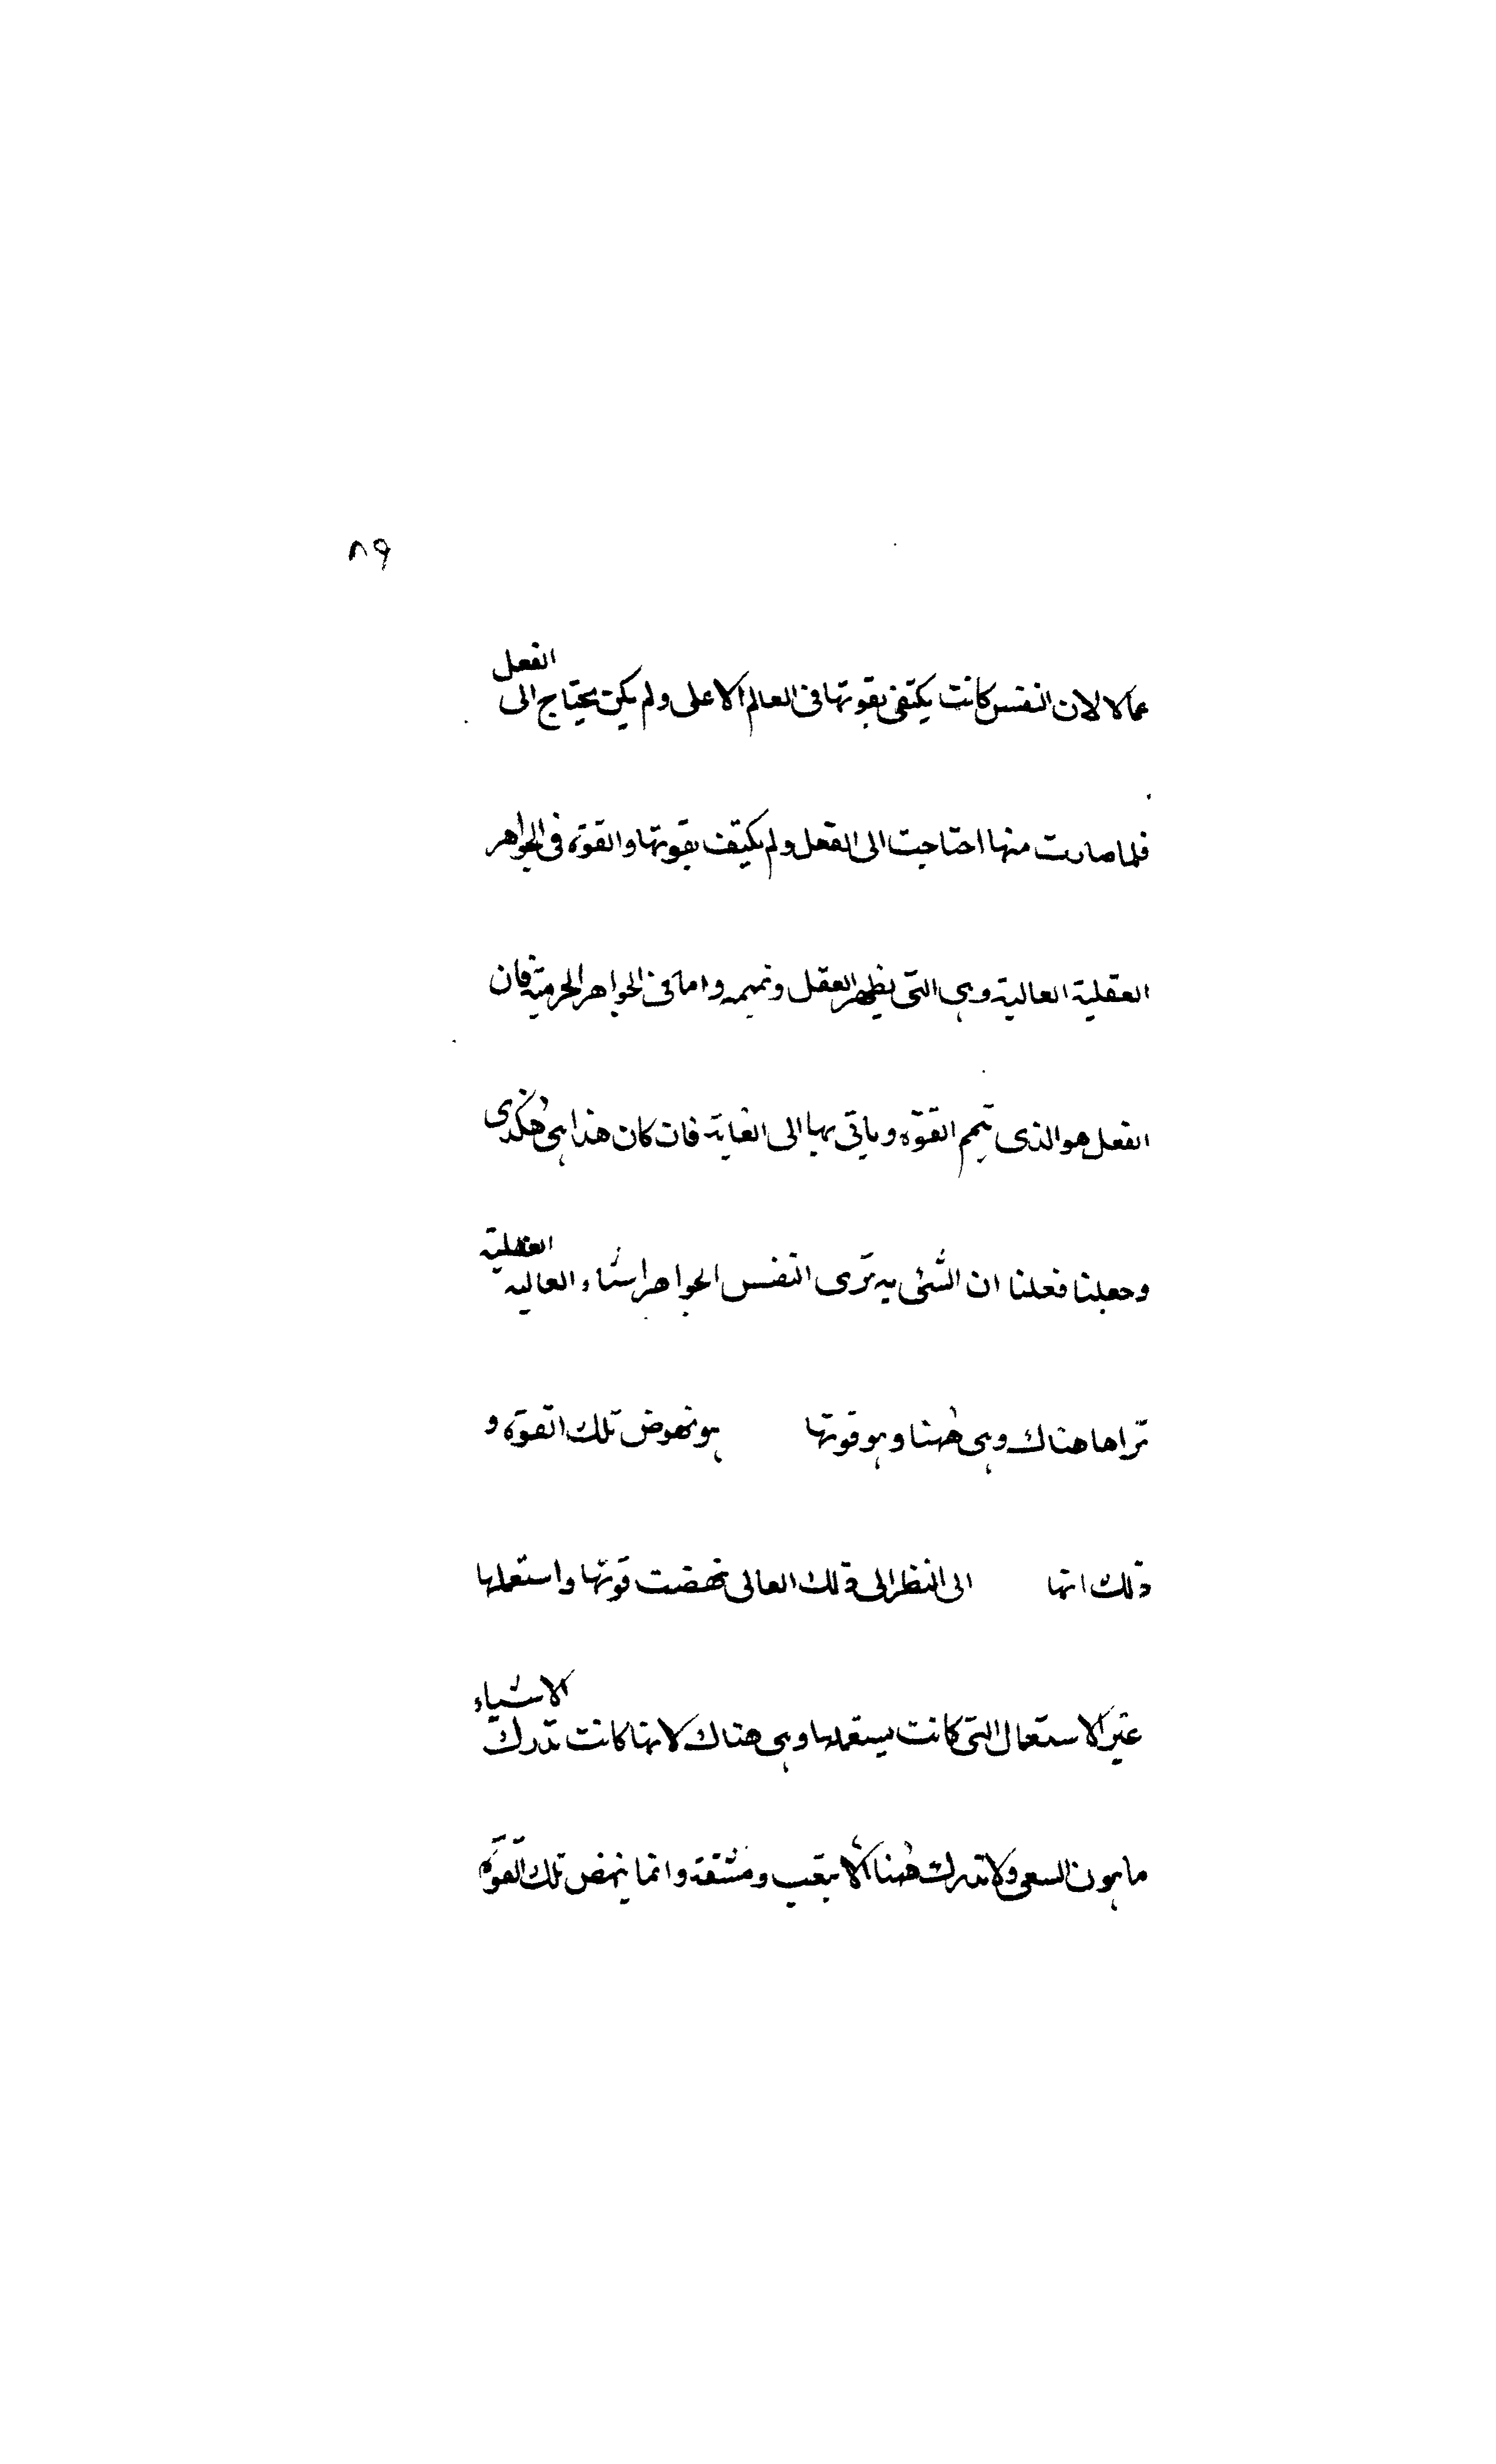 ٨٩
عمالا لان النفس كانت يكتفى بقوتها فى العالم الاعلى ولم يكن يحتاج الى الفعل
فلما صارت منها احتاجت الى الفعل ولم يكتف بقوتها والقوة فى الجواهر
العقلية العالية وهى التى يظهر العقل وتميمه واما فى الجواهر الجرمية فان
الفعل هو الذى يتمم القوة وياتى بها الى الغاية فان كان هذا هى هكذى
وجعلنا فعلنا ان الشئ به ترى النفس الجواهر اشياء العاليه العقلية
تراها هناك وهى ههنا وهو قوتها هو نهوض تلك القوة و
ذلك انها الى النظر الى ذلك العالى نهضت قوتها واستعملها
غير الاستعمال التى كانت يستعملها وهى هناك لانها كانت تدرك الاشياء
ما هون السعى ولا تدرك ههنا الا بتعب ومشقة وانما ينهض تلك القوة